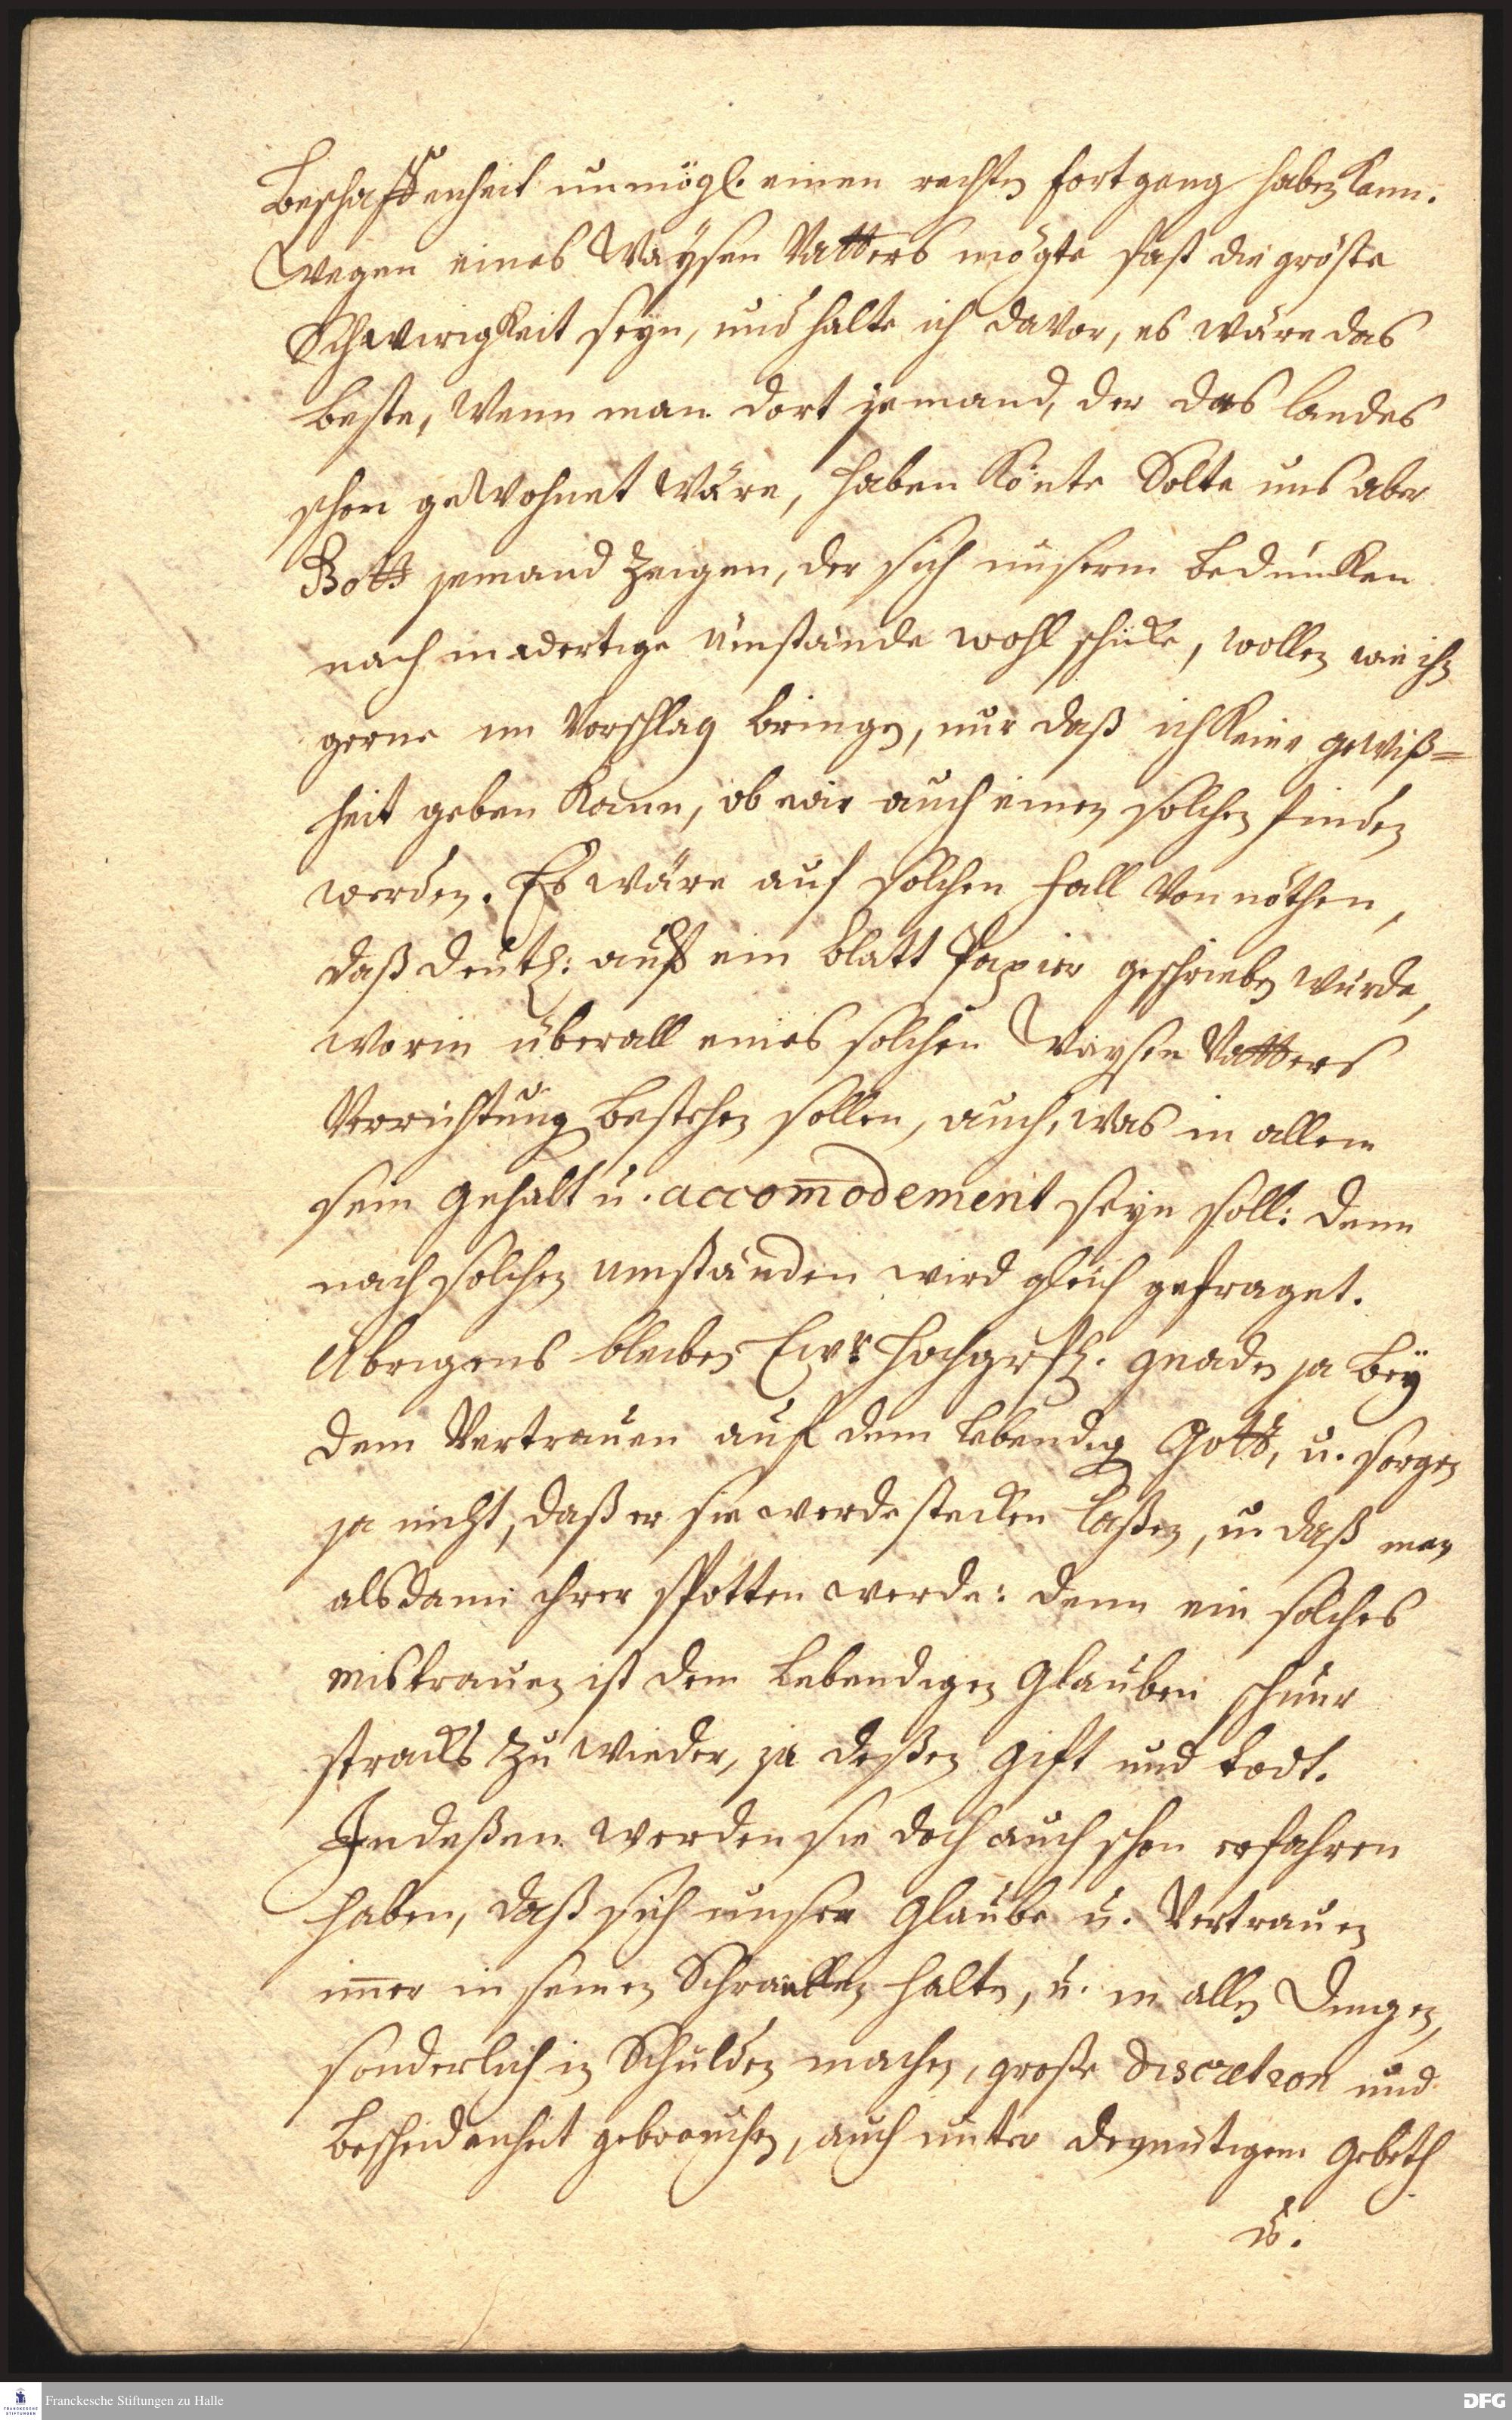 Beschaffenheit unmögl. einen rechten fortgang haben kann.
Wegen eines Waysen Vatters mögte fast die gröste
Schwirigkeit seyn, und halte ich davor, es wäre das
beste, wenn man dort jemand, der des landes
schon gewohnet wäre, haben könte Solte uns aber
Gott jemand zeigen, der sich unserm Bedüncken
nach in dortige Umstände wohl schicke, wollen wir ihn
gerne in Vorschlag bringen, nur daß ich keine gewiß=
heit geben kann, ob wir auch einen solchen finden
werden. Es wäre auf solchen fall von nöthen,
daß deutl: auff ein blatt Papier geschrieben würde,
worin überall eines solchen Waysen Vatters
Verrichtung bestehen sollen, auch, was in allem
sein gehalt u. accom̄odement seyn soll: denn
nach solchen umständen wird gleich gefraget.
Übrigens bleiben Ewr. Hochgräfl. gnaden ja bey
dem Vertrauen auf dem lebendig Gott, u. sorgen
ja nicht, daß er sie werde stecken laßen, u. daß man
alsdann ihrer spotten werde: denn ein solches
mistrauen ist dem lebendigen Glauben schnur
stracks zu wieder, ja deßen gift und todt.
Indeßen werden sie doch auch schon erfahren
haben, daß sich unser Glaube u. Vertrauen
im̄er in seinen Schrancken halte, u. in allen Dingen,
sonderlich in Schulden machen, große discretion und
bescheidenheit gebrauchen, auch unter demütigem gebeth
u.
Franckesche Stiftungen zu Halle
DFG